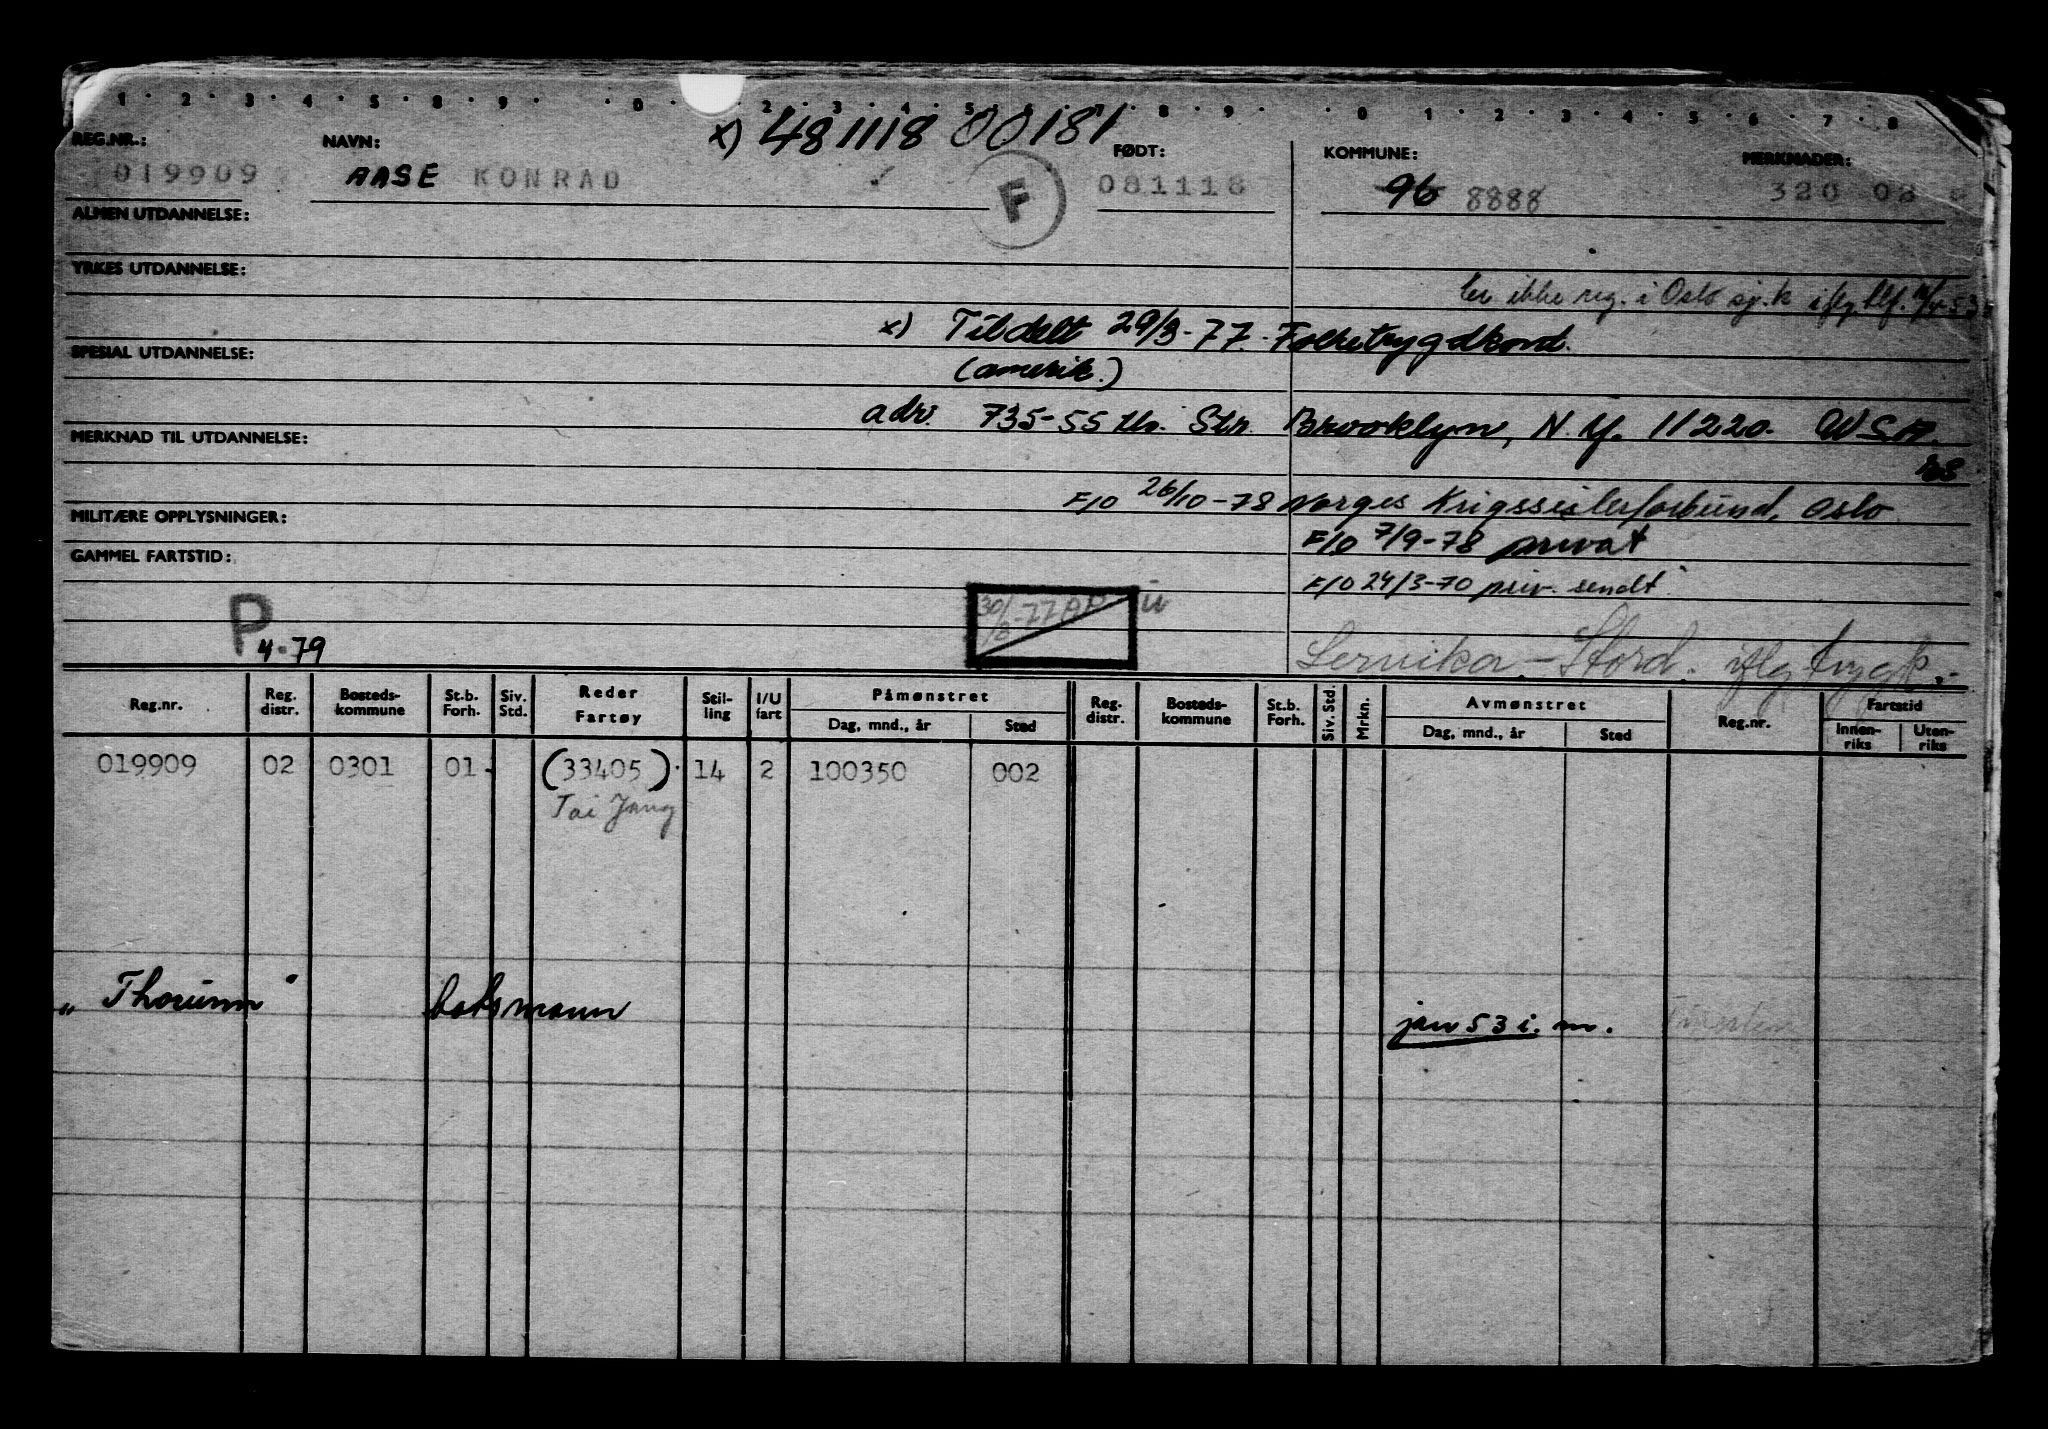 1 · 2 · 3 · 4 · 5 · 8 · 9 · · 0 · 2 · 3 · 4 · 5 · 6 · 7 · 8 · 9 · · 0 · 1 · 2 · 3 · 4 · 5 · 6 · 7 · 8
x) 481118 00181
REG.NR.: NAVN: FØDT: KOMMUNE: MERKNADER:
019909 AASE KONRAD F 081118 96 8888 320 08
ALMEN UTDANNELSE:
YRKES UTDANNELSE:
Er ikke reg. i Oslo sj.k iflg tlf.
x) Tildelt 29/3-77. Folketrygdkond.
SPESIAL UTDANNELSE:
(amerik.)
adr. 735-55 th. Str. Brooklyn, N.Y. 11220. USA.
MERKNAD TIL UTDANNELSE:
F/O 26/10-78 Norges Krigsseilerforbund, Oslo
MILITÆRE OPPLYSNINGER:
F/O 7/9-78 privat
GAMMEL FARTSTID:
F/O 24/3-70 priv. sendt
P 4-79
Lervika - Stord. iflg trygk.
Reg.nr. Reg. distr. Bosteds-kommune St.b. Forh. Siv. Std. Reder Fartøy Stil-ling I/U fart Påmønstret Dag, mnd., år Sted Reg. distr. Bosteds-kommune St.b. Forh. Siv. Std. Mrkn. Avmønstret Dag, mnd., år Sted Reg.nr. Fartstid Innen-riks Uten-riks
019909 02 0301 01 (33405) 14 2 100350 002
Tai Yang
"Thorunn" båtsmann jan 53 i. m.